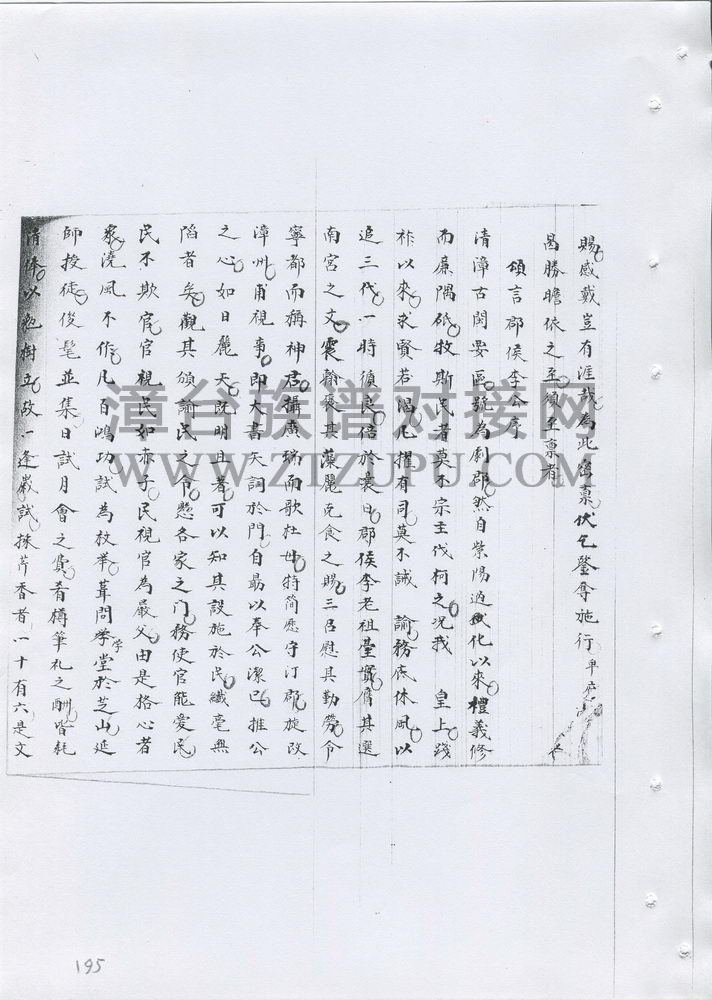 賜感戴豈有涯哉為此寧稟伏乞鑒奪施行
曷勝瞻依之至須至稟者
頌言郡侯李公序
清漳古閩要區號為劇郡然自紫陽過化以來禮義修
而廉隅砥牧斯民者莫不宗主伐柯之況我 皇上踐
祚以來求賢若渴凡擢有司莫不誡 諭務底休風以
追三代一時循良倍於曩日郡侯李老祖臺實膺其選
南宮之文宸翰褒其藻麗克食之賜三召慰其勤勞令
寧都而稱神君攝廣瑞而歌杜母特簡應守汀郡旋改
漳州甫視事即大書矢詞於門自勗以奉公潔己推公
之心如日麗天既明且著可以知其設施於民纖毫無
諂者矣觀其頒諭民之令懸各家之门務使官能愛民
民不欺官官視民如赤子民視官為嚴父由是格心者
衆澆風不作凡百鴻功試為枚举葺問学堂於芝山延
師授徒俊髦並集日試月會之費肴樽筆札之酬皆耗
清俸以勉樹立故一逢歲試採芹香者一十有六是文
漳台族谱对接网
WWW.ZTZUPU.COM
195